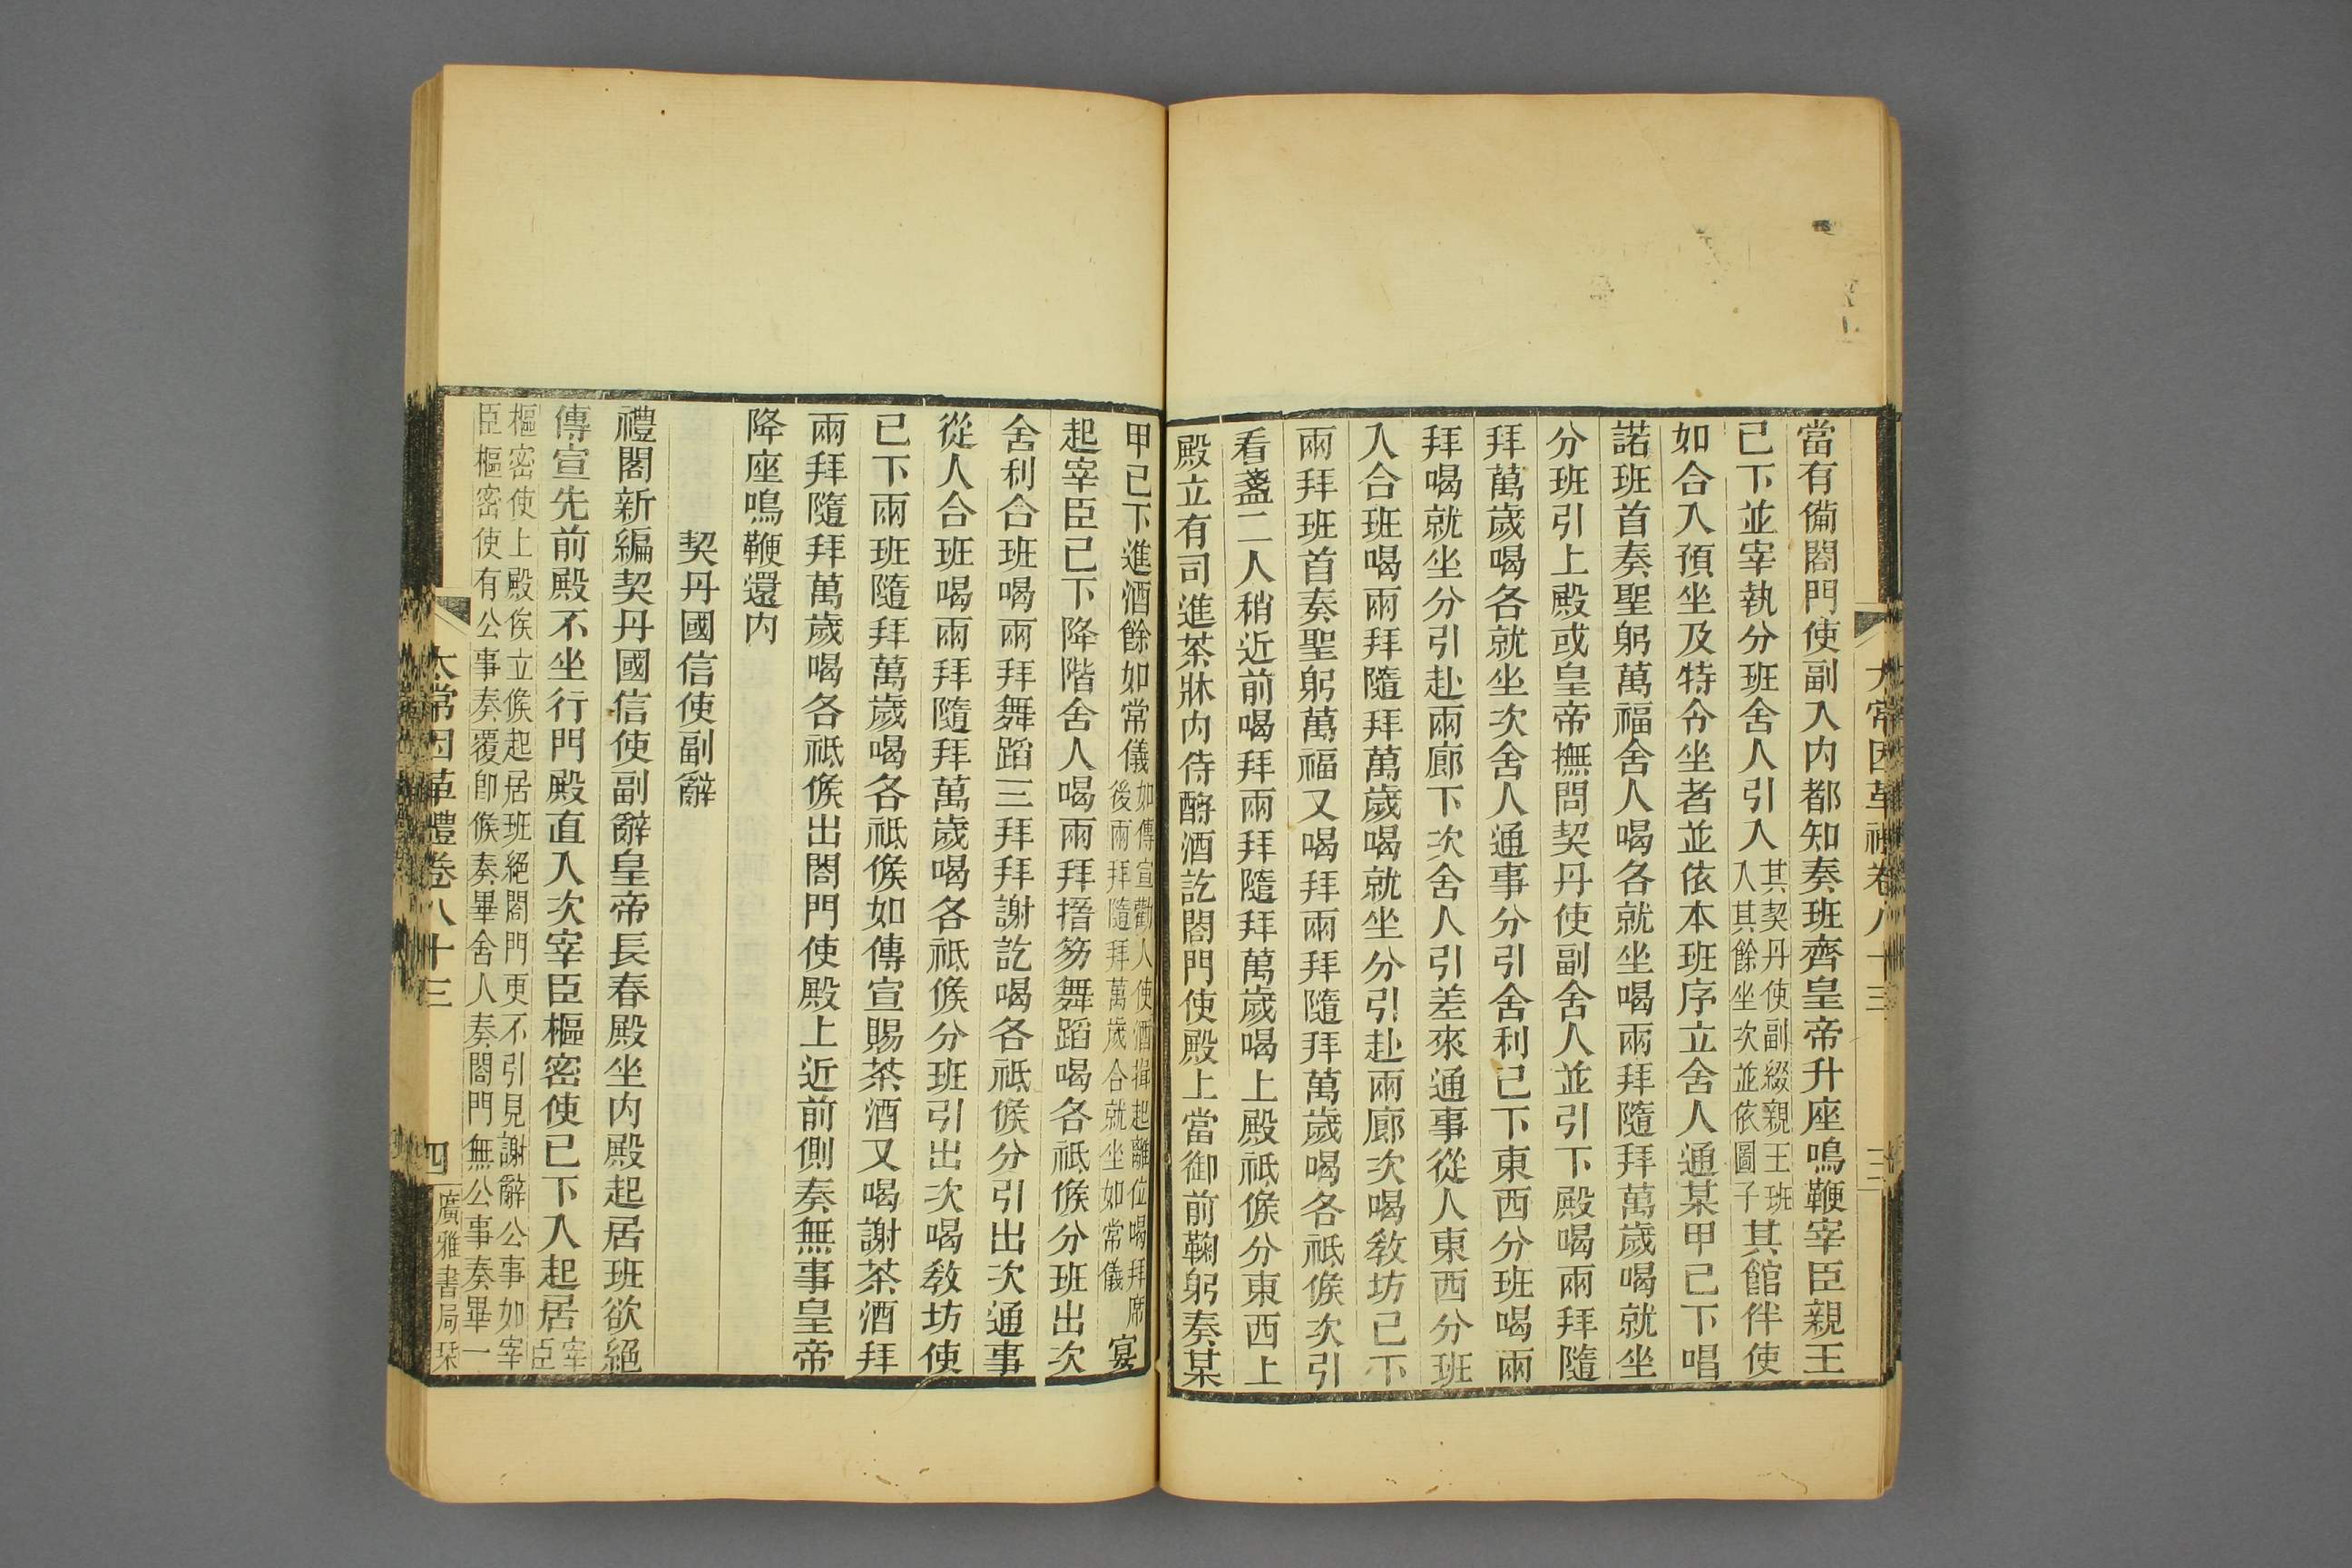 太常因革禮卷八十三 三
當有備閤門使副入内都知奏班齊皇帝升座鳴鞭宰臣親王
已下並宰執分班舍人引入其契丹使副綴親王班入其餘坐次並依圖子其館伴使
如合入預坐及特令坐者並依本班序立舍人通某甲已下唱
諾班首奏聖躬萬福舍人喝各就坐喝兩拜隨拜萬歲喝就坐
分班引上殿或皇帝撫問契丹使副舍人並引下殿喝兩拜隨
拜萬歲喝各就坐次舍人通事分引舍利已下東西分班喝兩
拜喝就坐分引赴兩廊下次舍人引差來通事從人東西分班
入合班喝兩拜隨拜萬歲喝就坐分引赴兩廊次喝教坊已下
兩拜班首奏聖躬萬福又喝拜兩拜隨拜萬歲喝各祗候次引
看盞二人稍近前喝拜兩拜隨拜萬歲喝上殿祗候分東西上
殿立有司進茶牀内侍酹酒訖閤門使殿上當御前鞠躬奏某
甲已下進酒餘如常儀如傳宣勸人使酒揖起離位喝拜席後兩拜隨拜萬歲合就坐如常儀宴
起宰臣已下降階舍人喝兩拜搢笏舞蹈喝各祗候分班出次
舍利合班喝兩拜舞蹈三拜拜謝訖喝各祗候分引出次通事
從人合班喝兩拜隨拜萬歲喝各祗候分班引出次喝教坊使
已下兩班隨拜萬歲喝各祗候如傳宣賜茶酒又喝謝茶酒拜
兩拜隨拜萬歲喝各祗候出閤門使殿上近前側奏無事皇帝
降座鳴鞭還内
契丹國信使副辭
禮閣新編契丹國信使副辭皇帝長春殿坐内殿起居班欲絕
傳宣先前殿不坐行門殿直入次宰臣樞密使已下入起居宰臣
樞密使上殿俟立候起居班絕閤門更不引見謝辭公事如宰
臣樞密使有公事奏覆卽候奏畢舍人奏閤門無公事奏畢一
太常因革禮卷八十三 四 廣雅書局栞